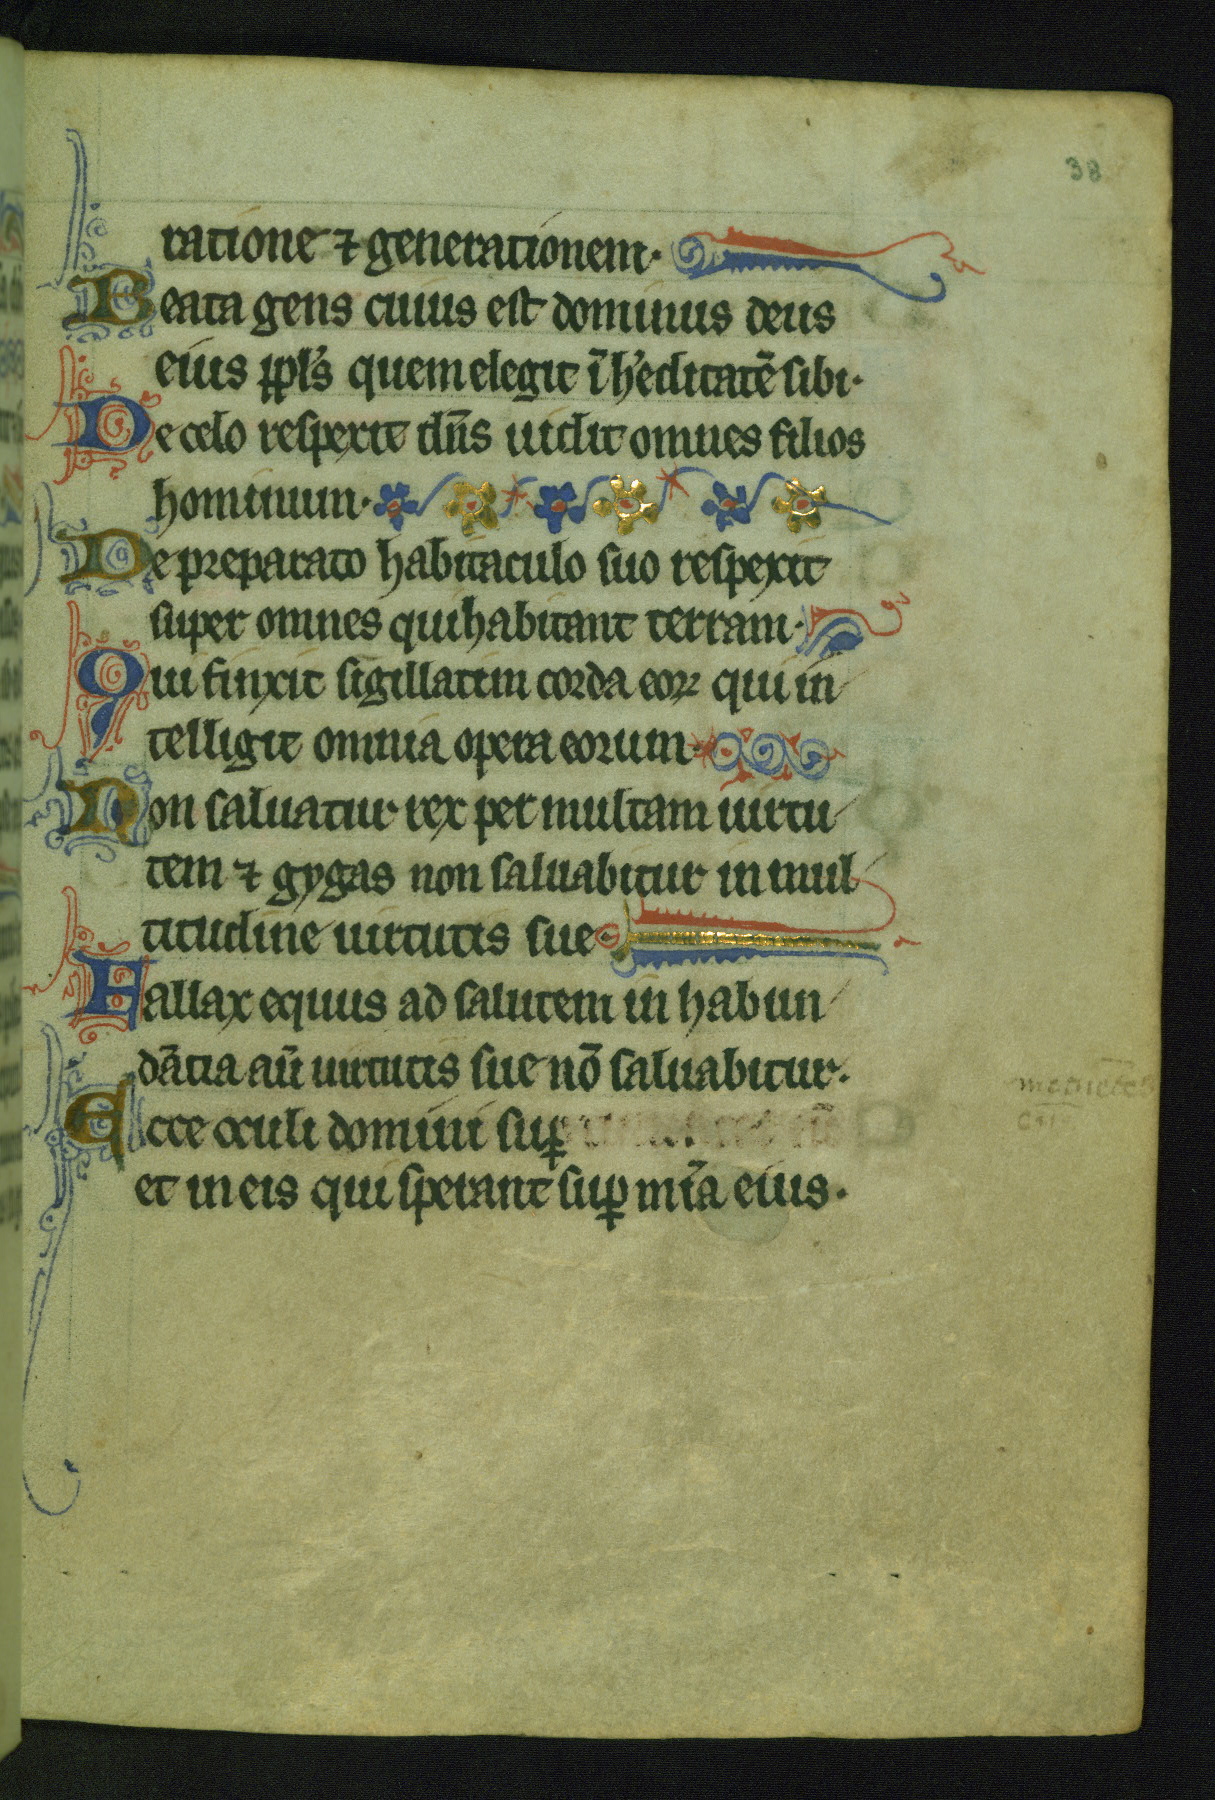 38
ratione ⁊ generationem·
Beata gens cuius est dominus deus
eius ppl's quem elegit ī h'editatē sibi·
De celo respexit dn̄s uidit omnes filios
hominum·
De preparato habitaculo suo respexit
super omnes qui habitant terram·
Qui finxit sigillatim corda eoꝝ qui in
telligit omnia opera eorum·
Non saluatur rex per multam uirtu
tem ⁊ gygas non saluabitur in mul
titudine uirtutis sue·
Fallax equus ad salutem in habun
dātia aut̄ uirtutis sue nō saluabitur·
Ecce oculi domini suꝑ
et in eis qui sperant suꝑ mīa eius·